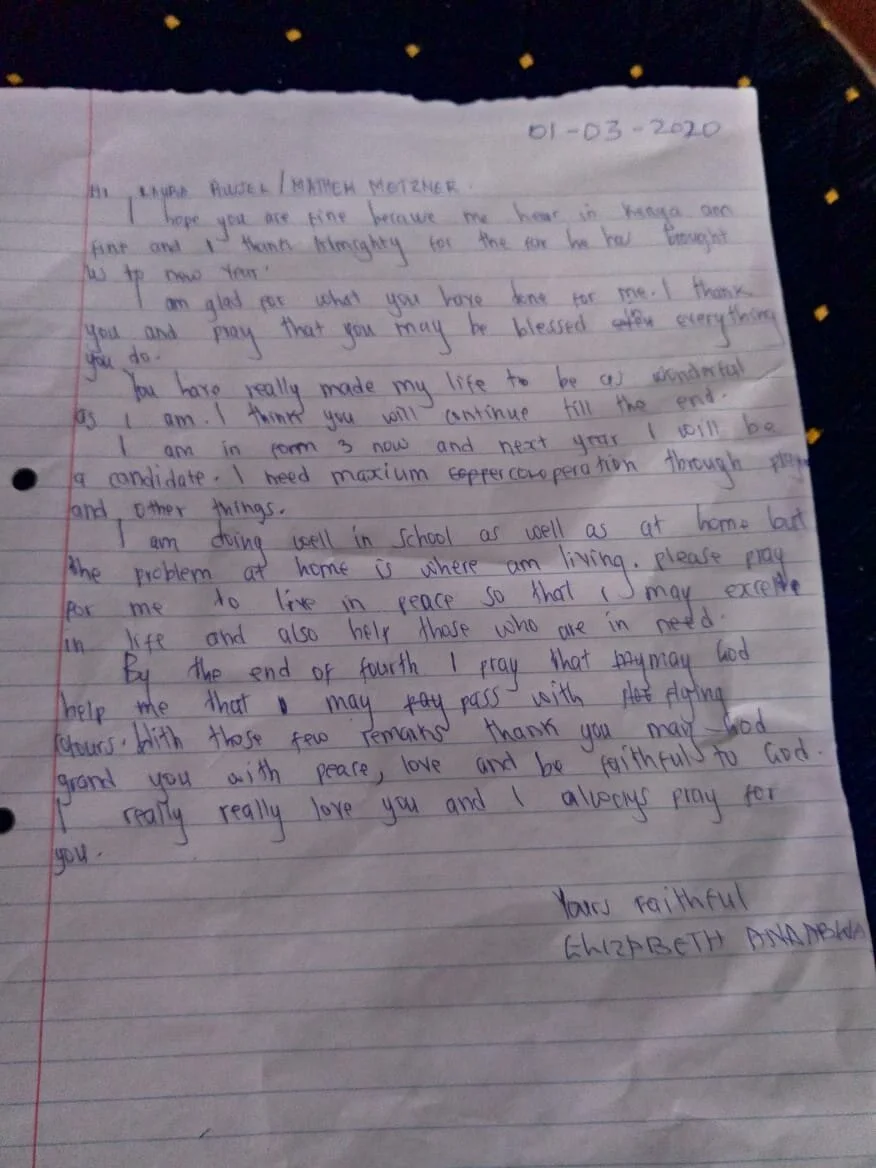 01-03-2020
Hi, / MATHEW METZNER.
I hope you are fine because me hear in Kenya am
fine and I thank Almighty for the far he has brought
us to new Year.
I am glad for what you have done for me. I thank
you and pray that you may be blessed everything
you do.
You have really made my life to be as wonderful
as I am. I think you will continue till the end.
I am in form 3 now and next year I will be
a candidate. I need maxium cooperation through
and other things.
I am doing well in school as well as at home but
the problem at home is where am living. please pray
for me to live in peace so that I may
in life and also help those who are in need.
By the end of fourth I pray that may God
help me that I may pass with flying
With those few remains thank you may God
grand you with peace, love and be faithful to God.
I really really love you and I always pray for
you.
Yours Faithful
ELIZABETH